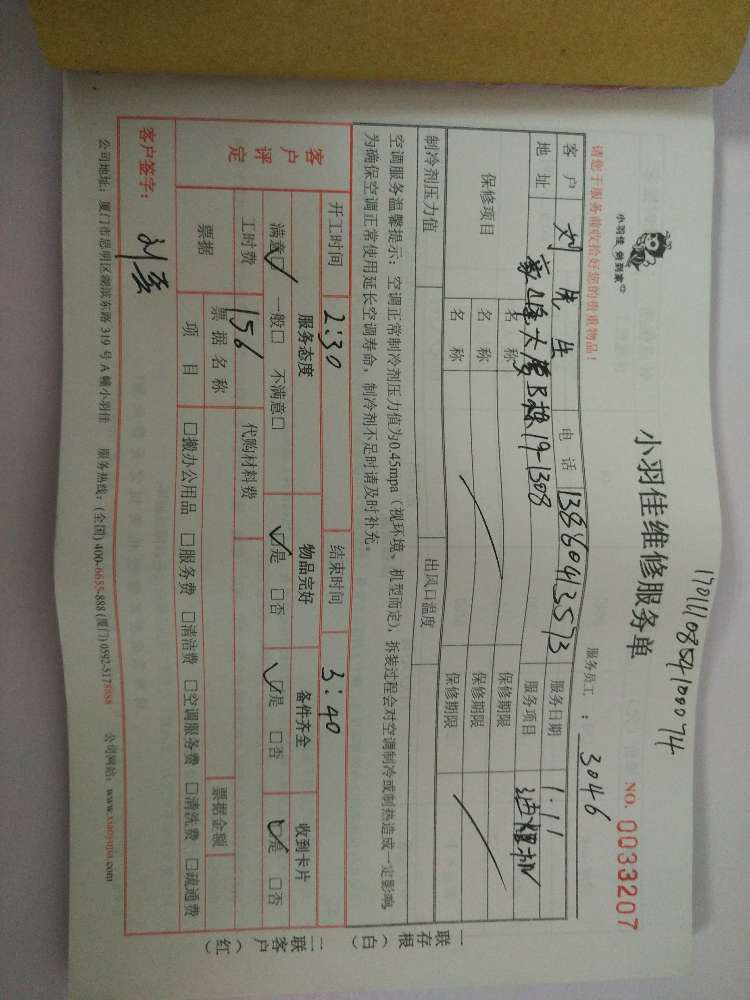 1701110854100074
小羽佳 做到家
小羽佳维修服务单
NO. 0033207
请您于服务前收拾好您的贵重物品！
服务员工：3046
客户 刘先生 电话 13860413573 服务日期 1.11
地址 大厦B栋19-1308 服务项目 油烟机
保修项目 名称 保修期限
名称 保修期限
名称 保修期限
制冷剂压力值 出风口温度
空调服务温馨提示：空调正常制冷剂压力值为0.45mpa（视环境、机型而定），拆装过程会对空调制冷或制热造成一定影响，
为确保空调正常使用延长空调寿命，制冷剂不足时请及时补充。
开工时间 2:30 结束时间 3:40
客户评定 服务态度 物品完好 备件齐全 收到卡片
满意☑ 一般□ 不满意□ ☑是 □否 ☑是 □否 ☑是 □否
工时费 156 代购材料费
票据 票据名称 票据金额
项目 □搬办公用品 □服务费 □清洁费 □空调服务费 □清洗费 □疏通费
客户签字：刘
公司地址：厦门市思明区湖滨东路319号A幢小羽佳 服务热线：(全国) 400-6655-888 (厦门) 0592-5178888 公司网站：www.xiaoyujia.com
一联存根（白）
二联客户（红）